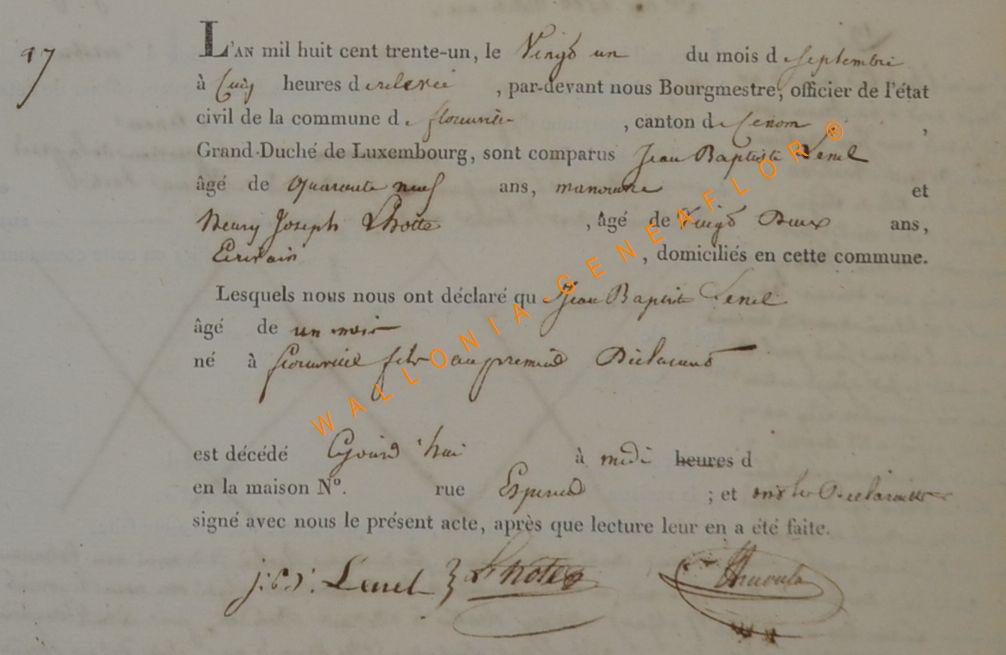 97
L'AN mil huit cent trente-un, le Vingt un du mois de Septembre
à Cinq heures de relevée, par-devant nous Bourgmestre, officier de l'état
civil de la commune de florenville, canton de
Grand-Duché de Luxembourg, sont comparus Jean Baptiste Lenel
âgé de Quarante neuf ans, manœuvre et
Henry Joseph Lhotte, âgé de Vingt Deux ans,
Ecrivain, domiciliés en cette commune.
Lesquels nous nous ont déclaré que Jean Baptiste Lenel
âgé de un mois
né à florenville fils au premier Déclarant
est décédé aujourd'hui à midi heures d
en la maison N°. rue ; et ont les Déclarants
signé avec nous le présent acte, après que lecture leur en a été faite.
j. b. t. Lenel Lhotte
WALLONIA GENEAFLOR ©